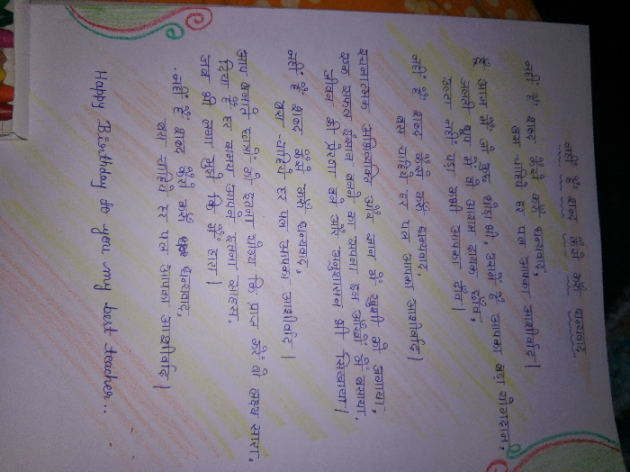 नहीं हैं शब्द कैसे करूँ धन्यवाद
नहीं हैं शब्द कैसे करूँ धन्यवाद,
बस चाहिये हर पल आपका आशीर्वाद।
हूँ आज मैं जो कुछ थोड़ा भी, उसमें है आपका बड़ा योगदान,
इतना नहीं पड़ा कभी आपका
नहीं हैं शब्द कैसे करूँ धन्यवाद,
बस चाहिये हर पल आपका आशीर्वाद।
रचनात्मक अभिव्यक्ति और ज्ञान में खुशी को जगाया,
एक सफल इंसान बनने का सपना इन आँखों में बसाया,
जीवन की प्रेरणा बने और अनुशासन भी सिखाया।
नहीं हैं शब्द कैसे करूँ धन्यवाद,
बस चाहिये हर पल आपका आशीर्वाद।
आप बनाने छात्रों को इतना योग्य कि प्राप्त करें वो लक्ष्य सारा,
दिया है हर समय आपने इतना सहारा,
जब भी लगा मुझे कि मैं हारा।
नहीं हैं शब्द कैसे करूँ धन्यवाद,
बस चाहिये हर पल आपका आशीर्वाद।
Happy Birthday to you my best teacher..